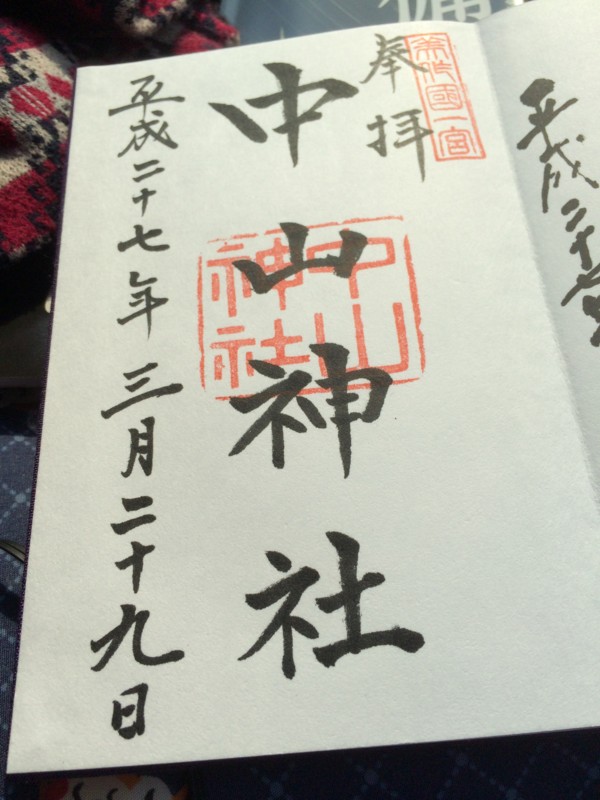 平成二十
美作國一宮
奉拝
中山神社
中山
神社
平成二十七年三月二十九日